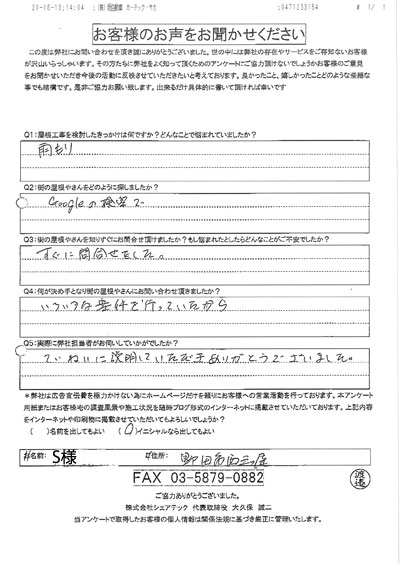 お客様のお声をお聞かせください
この度は弊社にお問い合わせを頂き誠にありがとうございました。世の中には弊社の存在やサービスをご存知ないお客様
が沢山いらっしゃいます。その方たちに弊社をよく知って頂くためのアンケートにご協力頂けないでしょうかお客様のご意見
をお聞かせいただき今後の活動に反映させていただきたいと考えております。良かったこと、嬉しかったことどのような些細な
事でも結構です。是非ご協力お願い致します。出来るだけ具体的に書いて頂ければ幸いです
Q1:屋根工事を検討したきっかけは何ですか?どんなことで悩まれていましたか?
雨もり
Q2:街の屋根やさんをどのように探しましたか?
Googleの検索で
Q3:街の屋根やさんを知りすぐにお問合せ頂けましたか?もし悩まれたとしたらどんなことがご不安でしたか?
すぐに問合せをした。
Q4:何が決め手となり街の屋根やさんにお問い合わせ頂きましたか?
いろいろな案件を行っていたから
Q5:実際に弊社担当者がお伺いしていかがでしたか?
ていねいに説明していただきありがとうございました。
*弊社は広告宣伝費を極力かけない為にホームページだけを頼りにお客様への営業活動を行っております。本アンケート
用紙またはお客様宅の調査風景や施工状況を随時ブログ形式のインターネットに掲載させていただいております。上記内容
をインターネットや印刷物に掲載させていただいてもよろしいでしょうか?
( )名前を出してもよい (○)イニシャルなら出してもよい
お名前: S様 ご住所: 野田市西三ヶ尾
FAX 03-5879-0882
渡邉
ご協力ありがとうございました。
株式会社シェアテック 代表取締役 大久保 誠二
当アンケートで取得したお客様の個人情報は関係法規に基づき厳正に管理いたします。